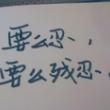 要么忍，
要么残忍．